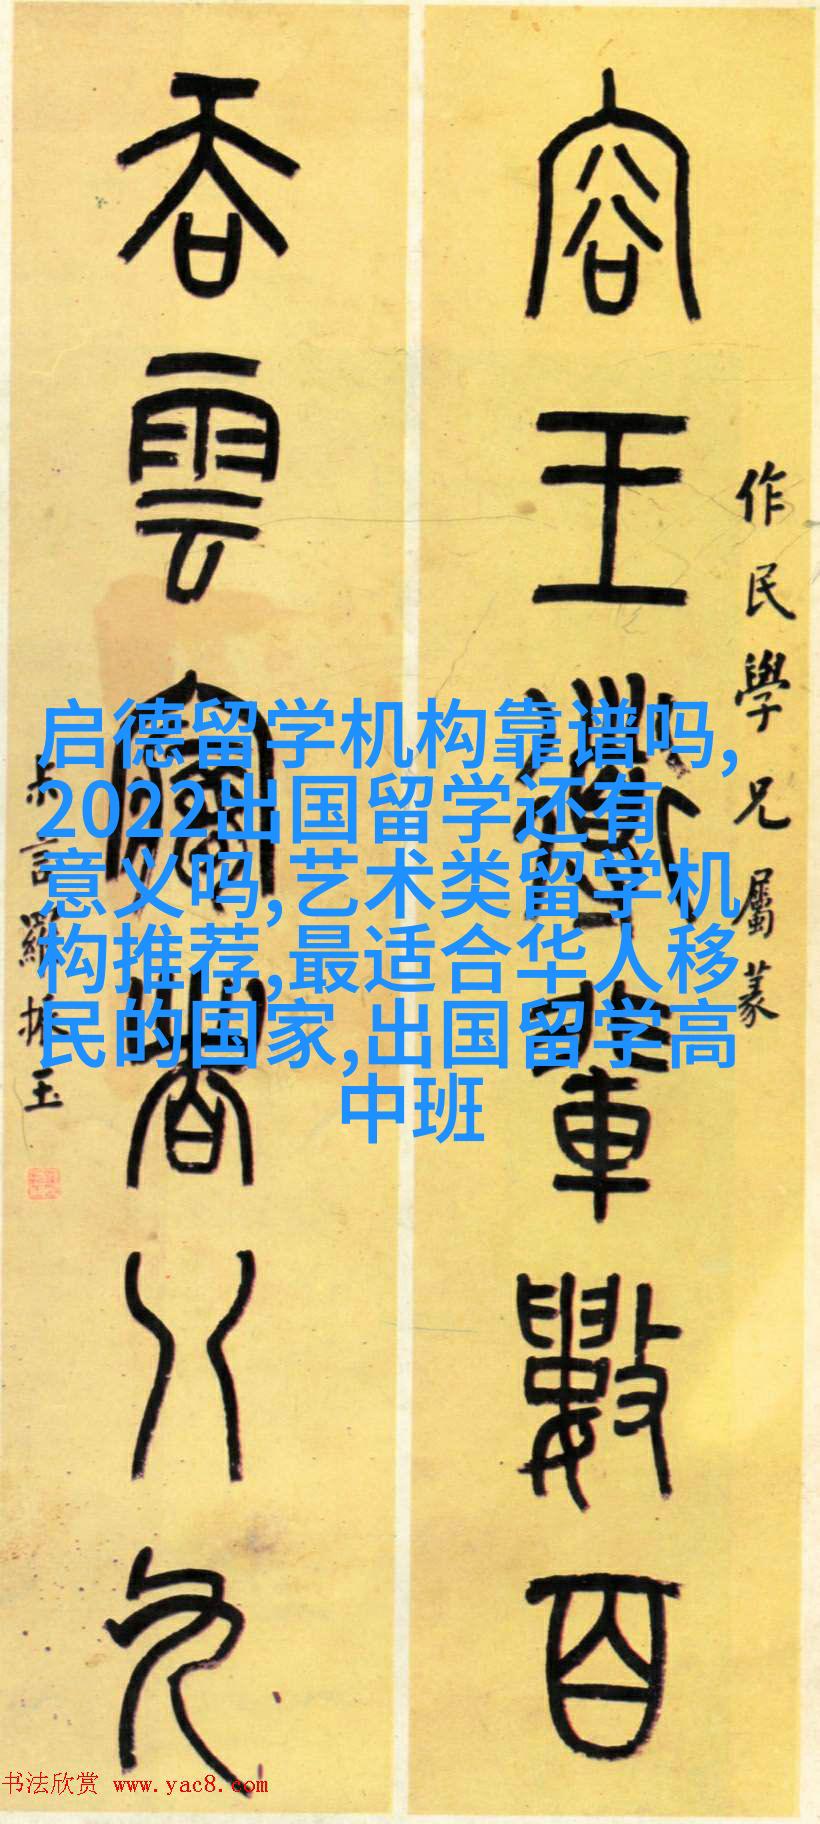 容王導輩數百
作民學兄屬篆
吞雲夢者八九
叔言羅振玉
启德留学机构靠谱吗,
2022出国留学还有
意义吗,艺术类留学机
构推荐,最适合华人移
民的国家,出国留学高
中班
书法欣赏 www.yac8.com